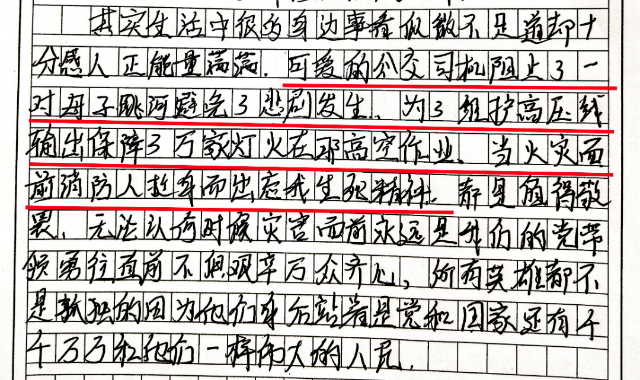 其实生活中很多身边事看似微不足道却十
分感人正能量满满.可爱的公交司机阻止了一
对母子跳河避免了悲剧发生.为了维护高压线
输出保障了万家灯火在那高空作业.当火灾面
前消防人挺身而出忘我生死精神.都是值得敬
畏.无论以何时候灾害面前永远是我们的党带
领勇往直前不但艰辛万众齐心,所有英雄都不
是孤独的因为他们身后站着是党和国家还有千
千万万和他们一样伟大的人民.